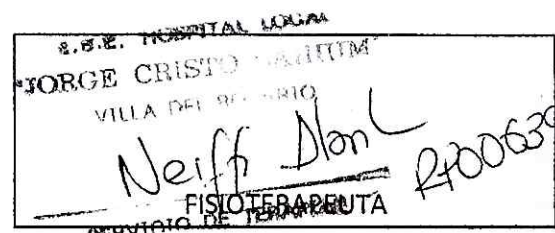 E.S.E. HOSPITAL LOCAL
"JORGE CRISTO SAHIUM"
VILLA DEL ROSARIO
Neiffi
FISIOTERAPEUTA
SERVICIO DE TERAPIA